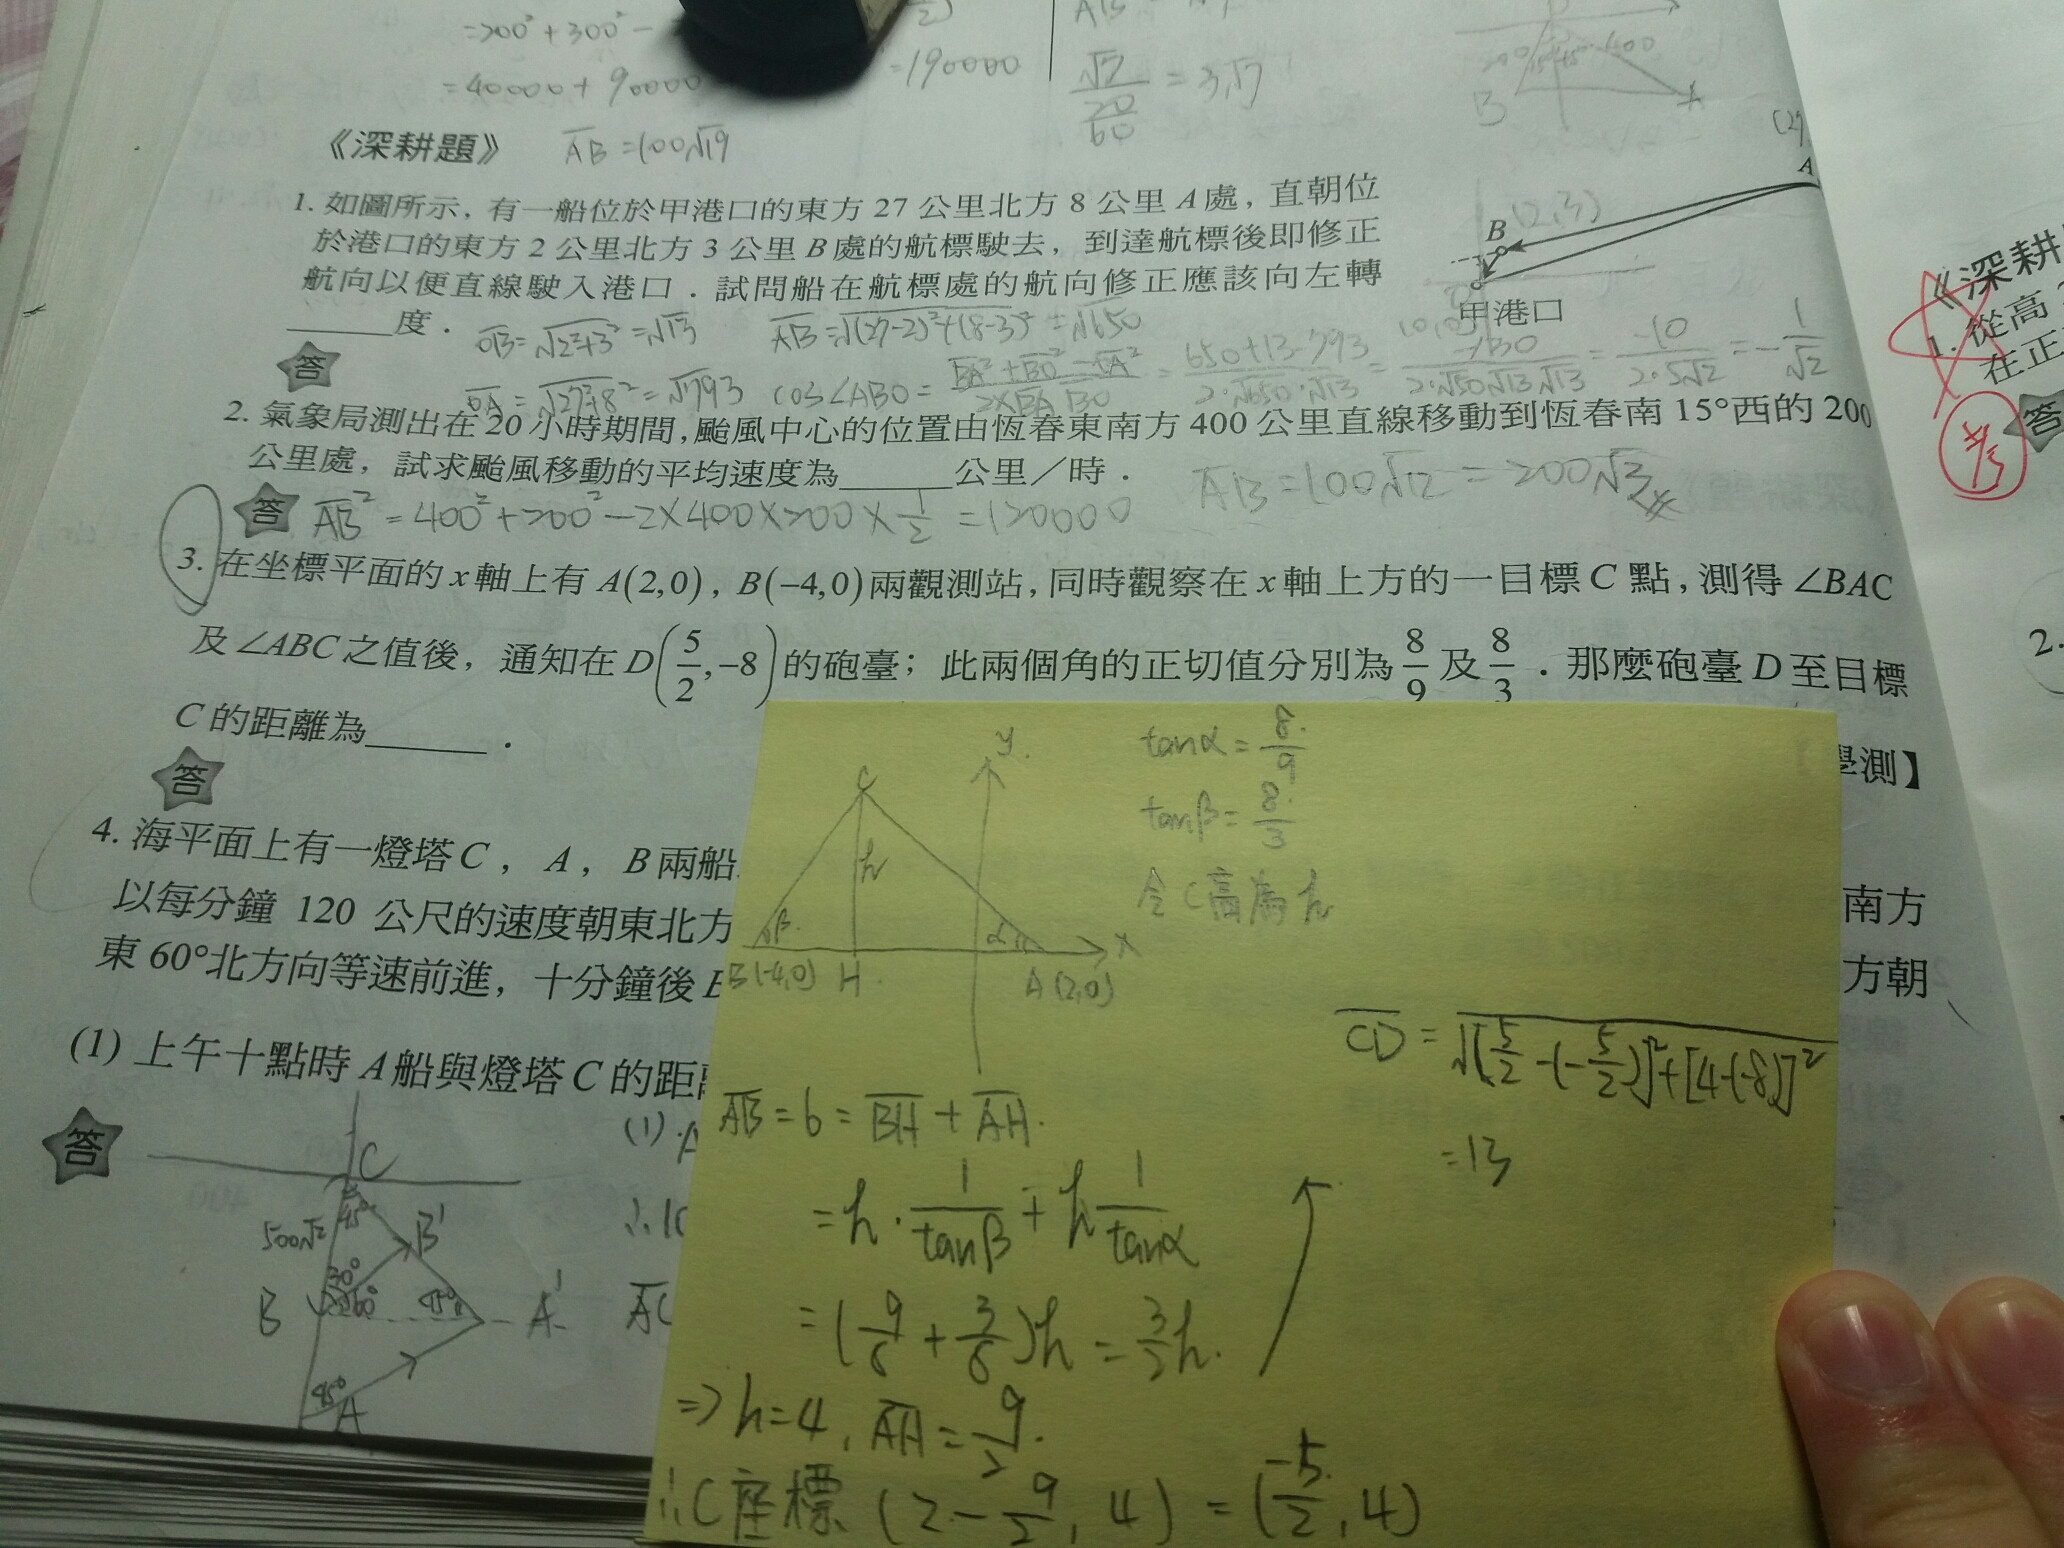 =200²+300²−
=40000+90000
=190000
√7/(20/60) = 3√7
B
A
《深耕題》
AB=100√19
1. 如圖所示，有一船位於甲港口的東方 27 公里北方 8 公里 A 處，直朝位
於港口的東方 2 公里北方 3 公里 B 處的航標駛去，到達航標後即修正
航向以便直線駛入港口．試問船在航標處的航向修正應該向左轉
______度．
A
B (2,3)
甲港口
OB=√(2²+3²)=√13 AB=√((27−2)²+(8−3)²)=√650
答
OA=√(27²+8²)=√793 cos∠ABO=(BA²+BO²−OA²)/(2×BA BO)=(650+13−793)/(2·√650·√13)=−130/(2·√50√13√13)=−10/(2·5√2)=−1/√2
2. 氣象局測出在 20 小時期間，颱風中心的位置由恆春東南方 400 公里直線移動到恆春南 15°西的 200
公里處，試求颱風移動的平均速度為______公里／時．
AB=100√12=200√3
答 AB²=400²+200²−2×400×200×1/2=120000
3. 在坐標平面的 x 軸上有 A(2,0)，B(−4,0)兩觀測站，同時觀察在 x 軸上方的一目標 C 點，測得 ∠BAC
及 ∠ABC 之值後，通知在 D(5/2,−8)的砲臺；此兩個角的正切值分別為 8/9 及 8/3．那麼砲臺 D 至目標
C 的距離為______．
學測】
答
4. 海平面上有一燈塔 C，A，B 兩船
南方
以每分鐘 120 公尺的速度朝東北方
方朝
東 60°北方向等速前進，十分鐘後 B
(1) 上午十點時 A 船與燈塔 C 的距
答
C
45°
500√2
B'
30°
60°
45°
B
A'
45°
A
(1)
AC
tanα=8/9
tanβ=8/3
令C高為h
y
C
h
β
α
x
B(-4,0) H A(2,0)
AB=6=BH+AH.
=h·1/tanβ+h 1/tanα
=(9/8+3/8)h=3/2h.
⇒h=4, AH=9/2.
∴C座標(2−9/2, 4)=(−5/2, 4)
CD=√[5/2−(−5/2)]²+[4−(−8)]²
=13
《深耕
1. 從高
在正
答
2.